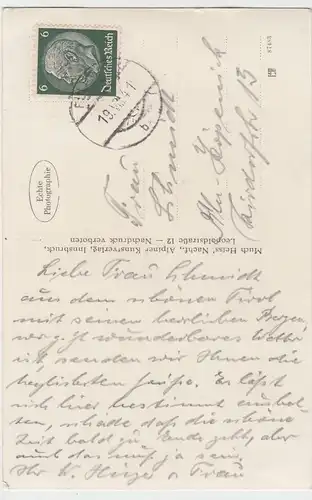 6 Deutsches Reich 6
19.
41
b
Frau
Schmidt
Bln-Köpenick
13
Echte
Photographie
Much Heiss Nachf., Alpiner Kunstverlag, Innsbruck,
Leopoldstraße 12 — Nachdruck verboten
Liebe Frau Schmidt
aus dem schönen Tirol
mit seinen herrlichen Bergen,
wo jetzt wunderbares Wetter
ist, senden wir Ihnen die
herzlichsten Grüße. Es läßt
sich hier bestimmt aushal-
ten, schade, daß die schöne
Zeit bald zu Ende geht, aber
auch das muß ja sein.
Ihr K. u Frau